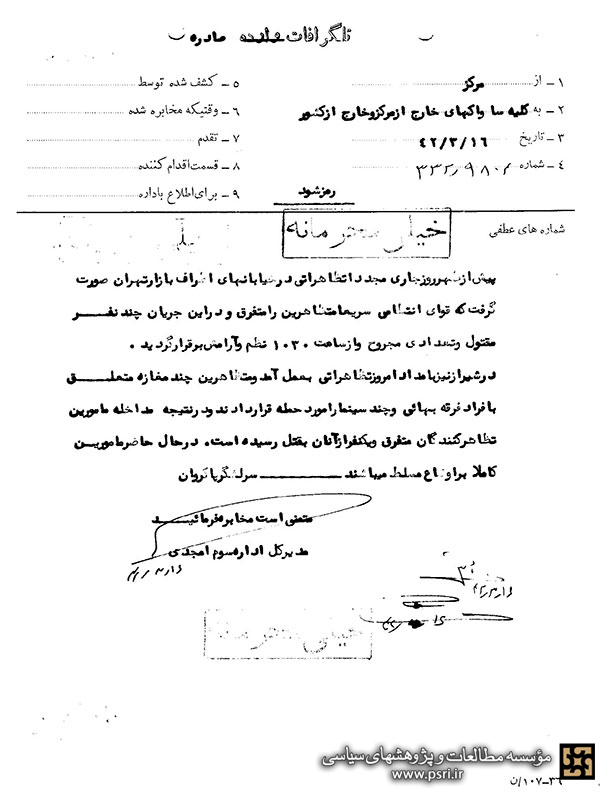 تلگرافات صادره
۱ ـ از مرکز
۲ ـ به کلیه ساواکهای خارج ازمرکزوخارج ازکشور
۳ ـ تاریخ ۴۲/۳/۱۶
۴ ـ شماره
۵ ـ کشف شده توسط
۶ ـ وقتیکه مخابره شده
۷ ـ تقدم
۸ ـ قسمت اقدام کننده
۹ ـ برای اطلاع باداره
رمزشود
شماره های عطفی
خیلی محرمانه
پیش ازظهرروزجاری مجددا تظاهراتی درخیابانهای اطراف بازارتهران صورت
گرفت که قوای انتظامی سریعا متظاهرین رامتفرق و دراین جریان چند نفر
مقتول وتعدادی مجروح وازساعت ۱۰۳۰ نظم وآرامش برقرارگردید .
درشیرازنیزبامدادامروزتظاهراتی بعمل آمدومتظاهرین چند مغازه متعلق
بافراد فرقه بهائی وچند سینماراموردحمله قراردادندودرنتیجه مداخله مامورین
تظاهرکنندگان متفرق ویکنفرازآنان بقتل رسیده است. درحال حاضرمامورین
کاملا براوضاع مسلط میباشند ـــــــ سرلشگرپاکروان
متمنی است مخابره فرمائید
مدیرکل اداره سوم امجدی
خیلی محرمانه
مؤسسه مطالعات و پژوهشهای سیاسی
www.psri.ir
۳۶ـ۱۰۷/ن